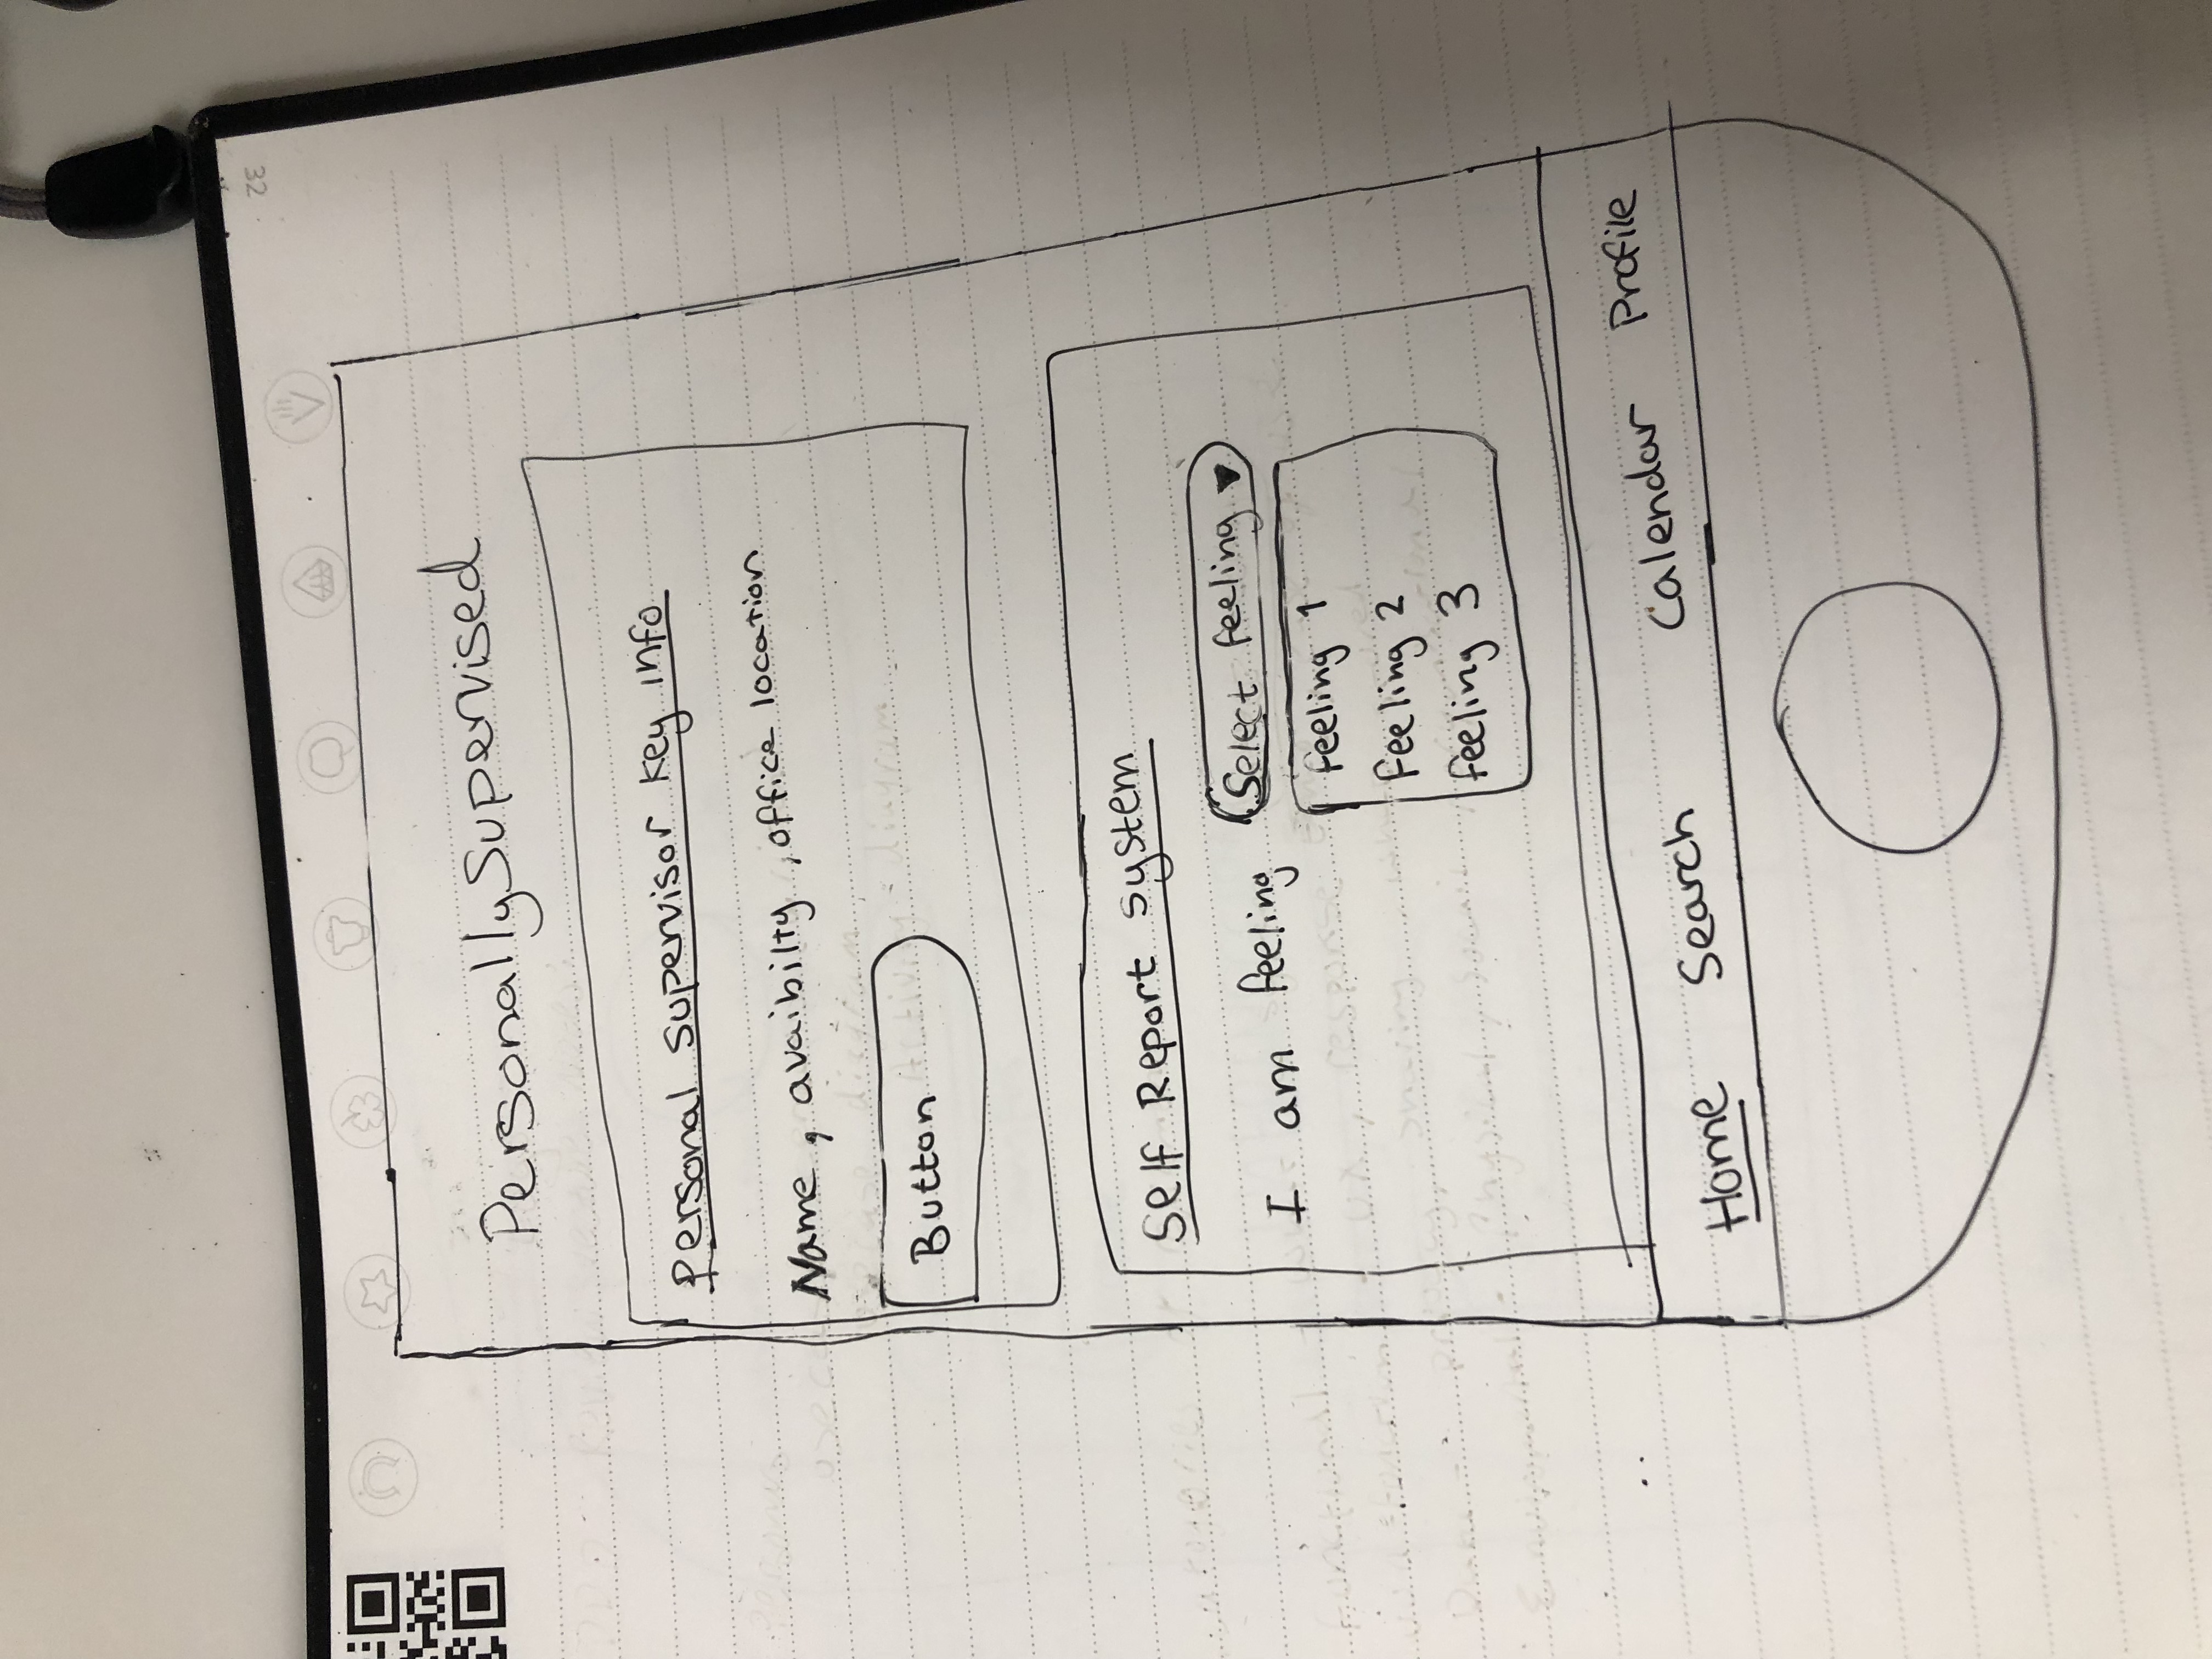 32
PersonallySupervised
Personal supervisor key info
Name, avaibilty, office location
Button
Self Report system
I am feeling Select feeling
feeling 1
feeling 2
feeling 3
Home Search Calendar Profile